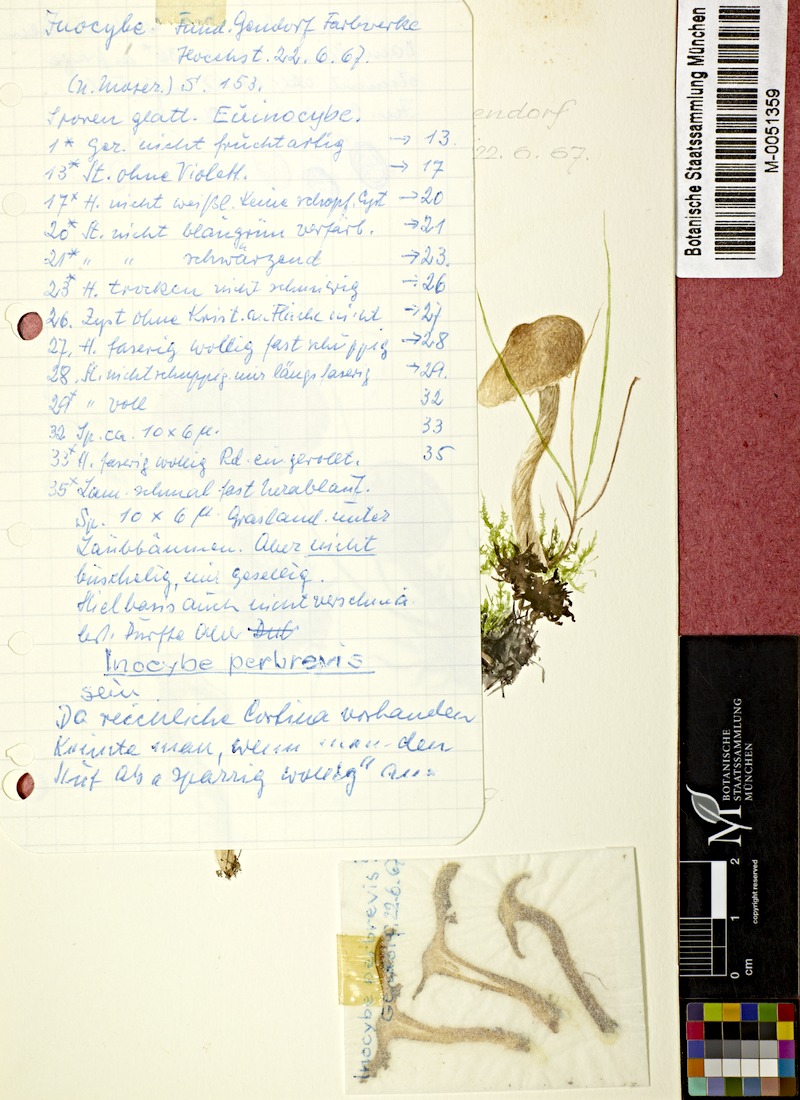 Inocybe. Fund. Gendorf Farbwerke
Hoechst. 22. 6. 67.
(n. Moser.) S. 153.
Sporen glatt. Euinocybe.
1* Ger. nicht fruchtartig → 13.
13* St. ohne Violett. → 17
17* H. nicht weißl. keine schopf. Cyst → 20
20* St. nicht blaugrün verfärb. → 21
21* " " schwärzend → 23.
23* H. trocken nicht schmierig → 26
26. Zyst ohne Krist. a. Fläche nicht → 27
27. H. faserig wollig fast schuppig → 28
28. St. nicht schuppig nur längsfaserig → 29.
29* " voll 32
32 Sp. ca. 10 x 6 µ. 33
33* H. faserig wollig Rd. eingerollt. 35
35* Lam. schmal fast herablauf.
Sp. 10 x 6 µ. Grasland unter
Laubbäumen. Aber nicht
büschelig, nur gesellig.
Stielbasis auch nicht verschmä
lert. Dürfte aber
Inocybe perbrevis
sein
Da reichliche Cortina vorhanden
könnte man, wenn man den
Hut als "sparrig wollig" an=
endorf
22. 6. 67.
Inocybe perbrevis
Gendorf. 22.6.67
Botanische Staatssammlung München
M-0051359
BOTANISCHE
STAATSSAMMLUNG
MÜNCHEN
copyright reserved
0 1 2
cm